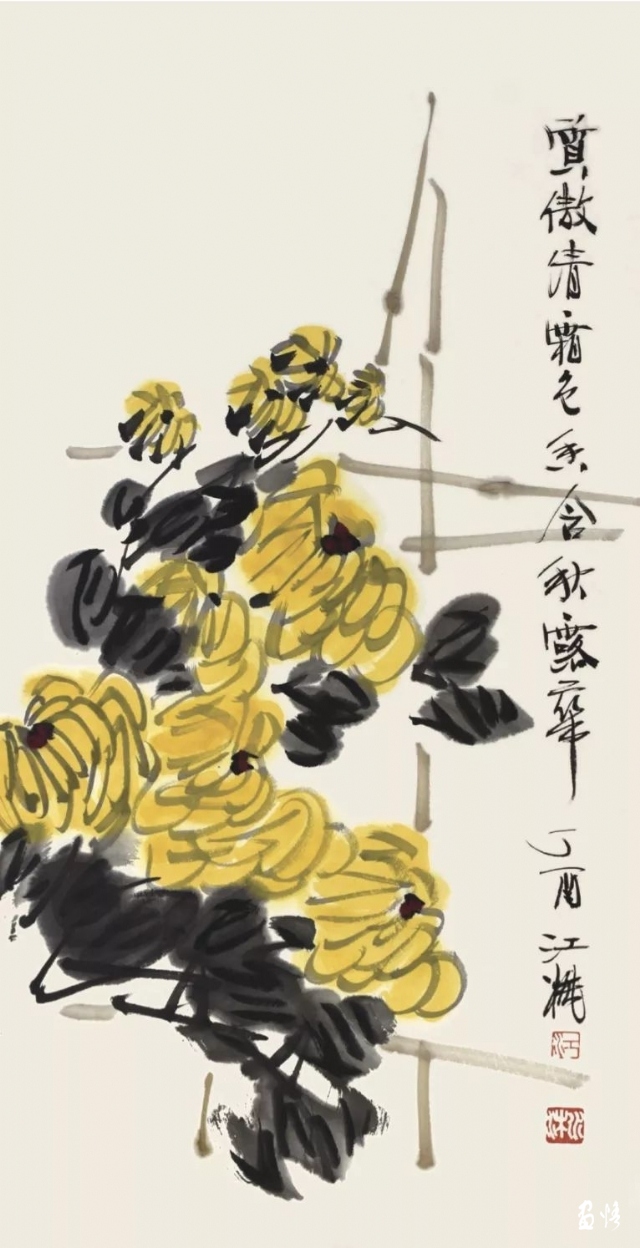 質傲清霜色香含秋露華
丁酉江
江